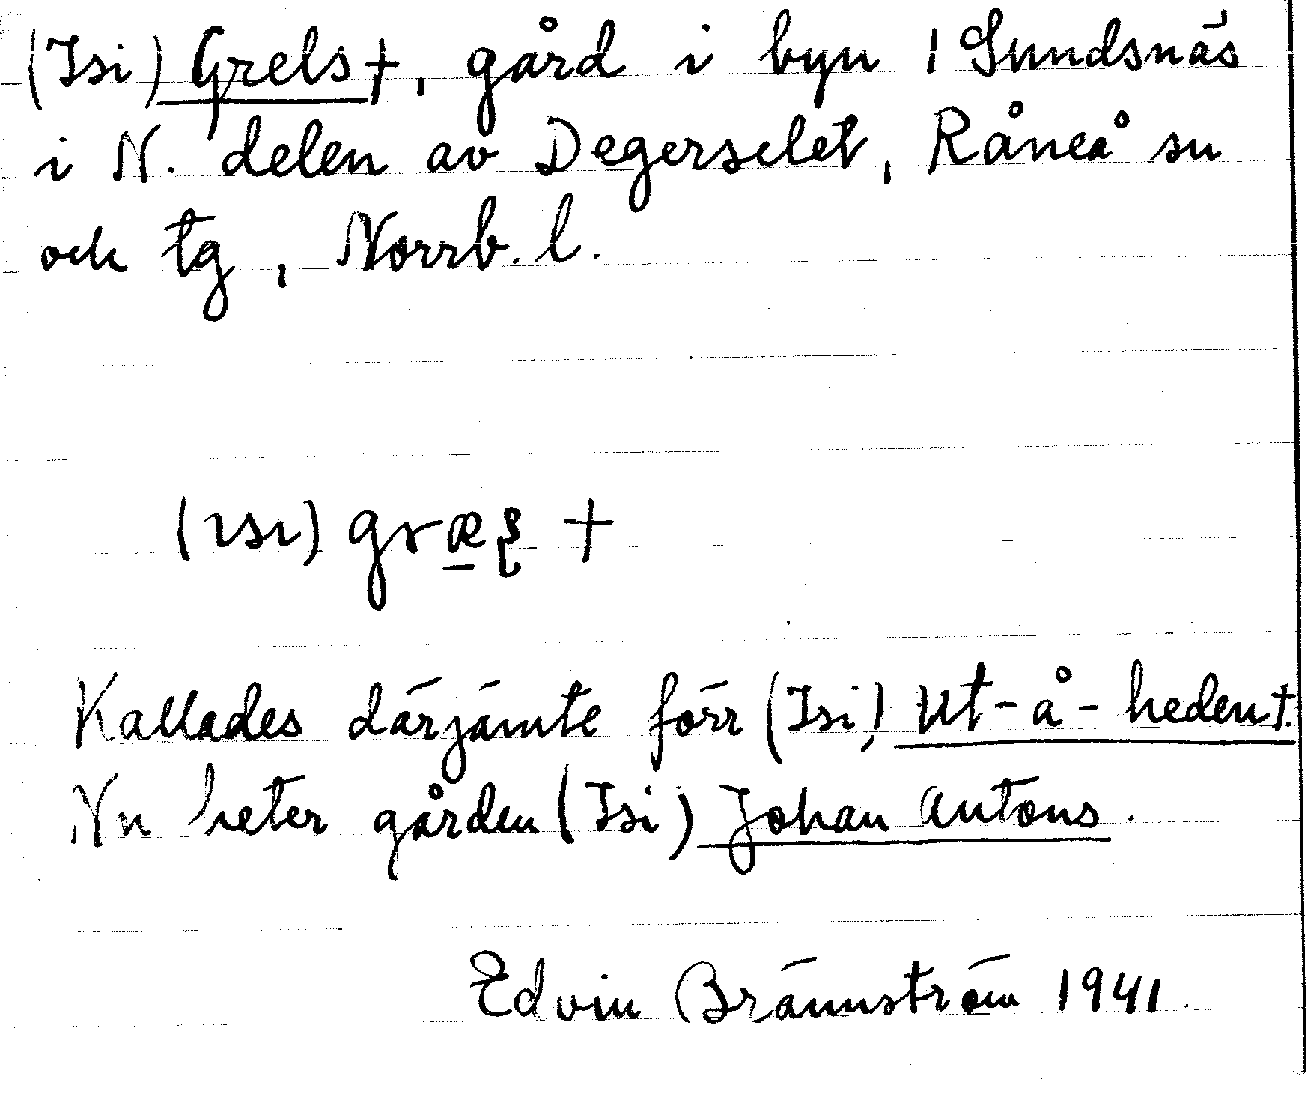 (Isi) Grels +, gård i byn Sundsnäs
i N. delen av Degerselet, Råneå sn
och tg, Norrb. l.
(ısı)
Kallades därjämte förr (Isi) Ut-å-heden +.
Nu heter gården (Isi) Johan Antons.
Edvin Brännström 1941